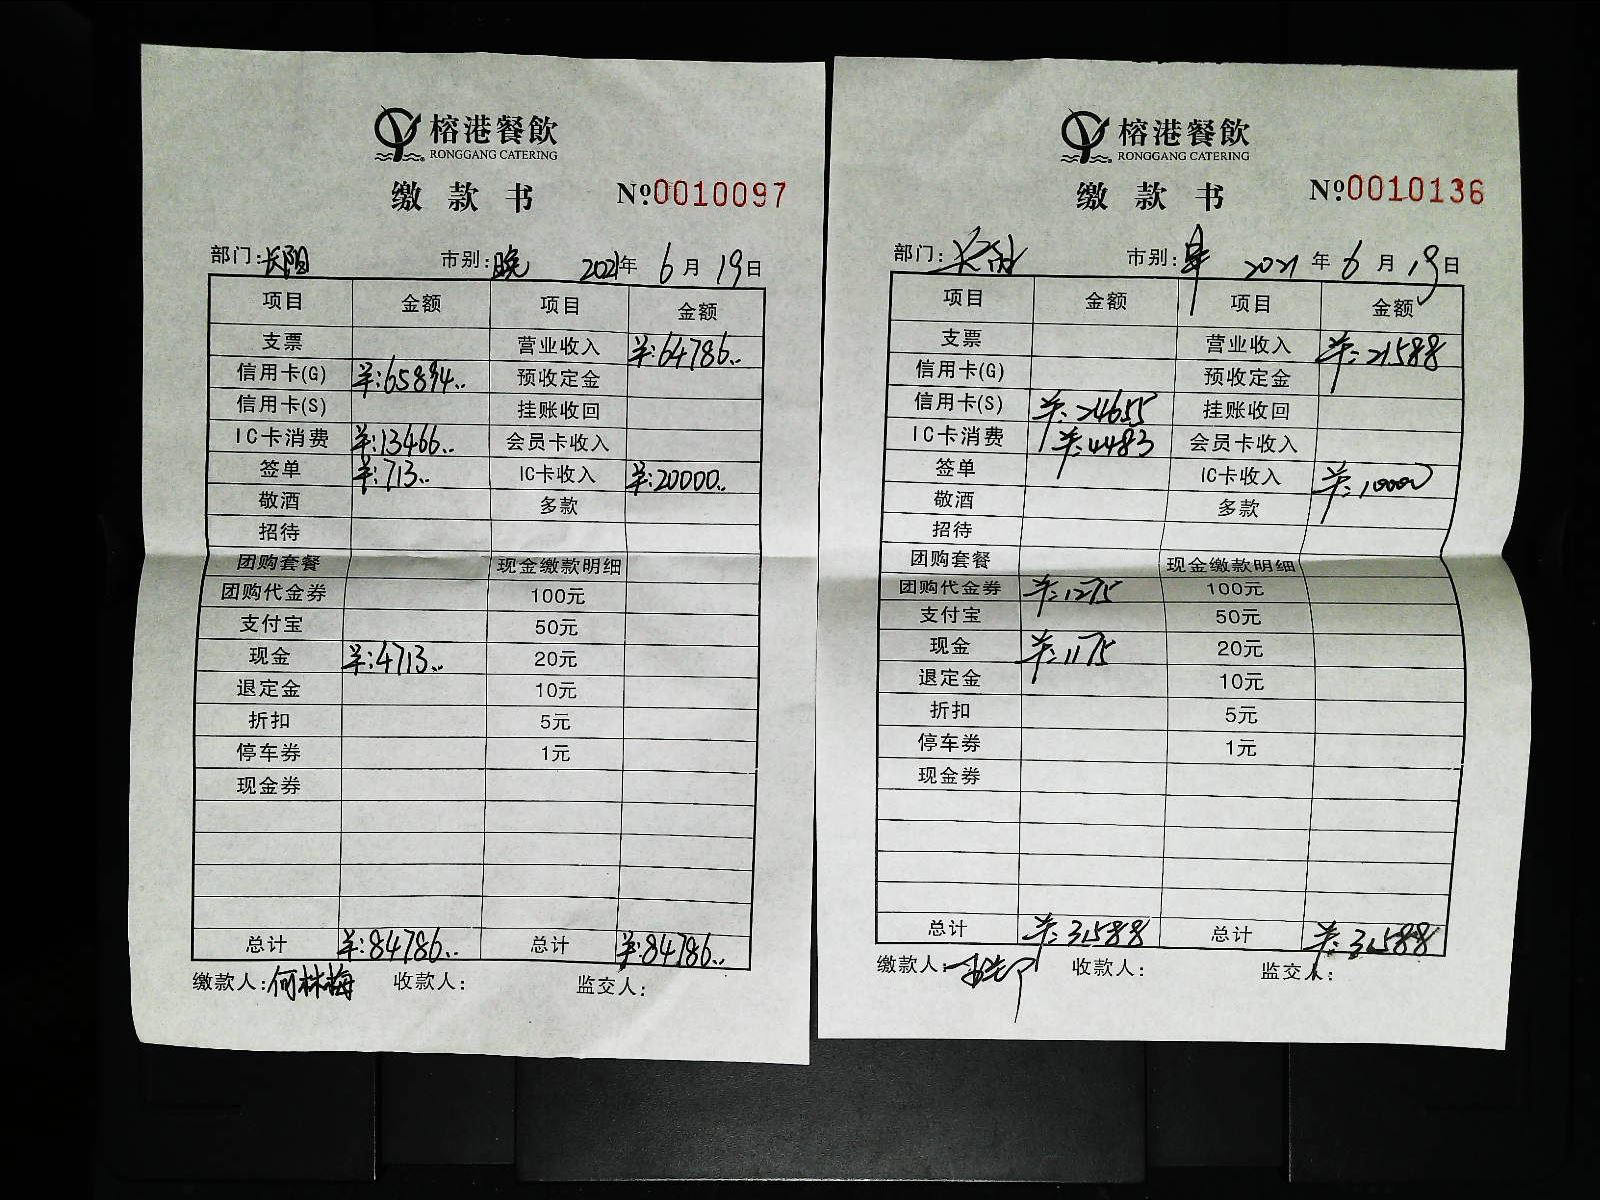 榕港餐飲
RONGGANG CATERING
缴款书 №0010097
部门:长阳 市别:晚 2021年6月19日
项目 金额 项目 金额
支票 营业收入 ¥:64786..
信用卡(G) ¥:65894.. 预收定金
信用卡(S) 挂账收回
IC卡消费 ¥:13466.. 会员卡收入
签单 ¥:713.. IC卡收入 ¥:20000..
敬酒 多款
招待
团购套餐 现金缴款明细
团购代金券 100元
支付宝 50元
现金 ¥:4713.. 20元
退定金 10元
折扣 5元
停车券 1元
现金券
总计 ¥:84786.. 总计 ¥:84786..
缴款人:何林梅 收款人: 监交人:
榕港餐飲
RONGGANG CATERING
缴款书 №0010136
部门: 市别:早 2021年6月19日
项目 金额 项目 金额
支票 营业收入 ¥:21588
信用卡(G) 预收定金
信用卡(S) ¥:24655 挂账收回
IC卡消费 ¥:4483 会员卡收入
签单 IC卡收入 ¥:10000
敬酒 多款
招待
团购套餐 现金缴款明细
团购代金券 ¥:1275 100元
支付宝 50元
现金 ¥:1175 20元
退定金 10元
折扣 5元
停车券 1元
现金券
总计 ¥:31588 总计 ¥:31588
缴款人: 收款人: 监交人: